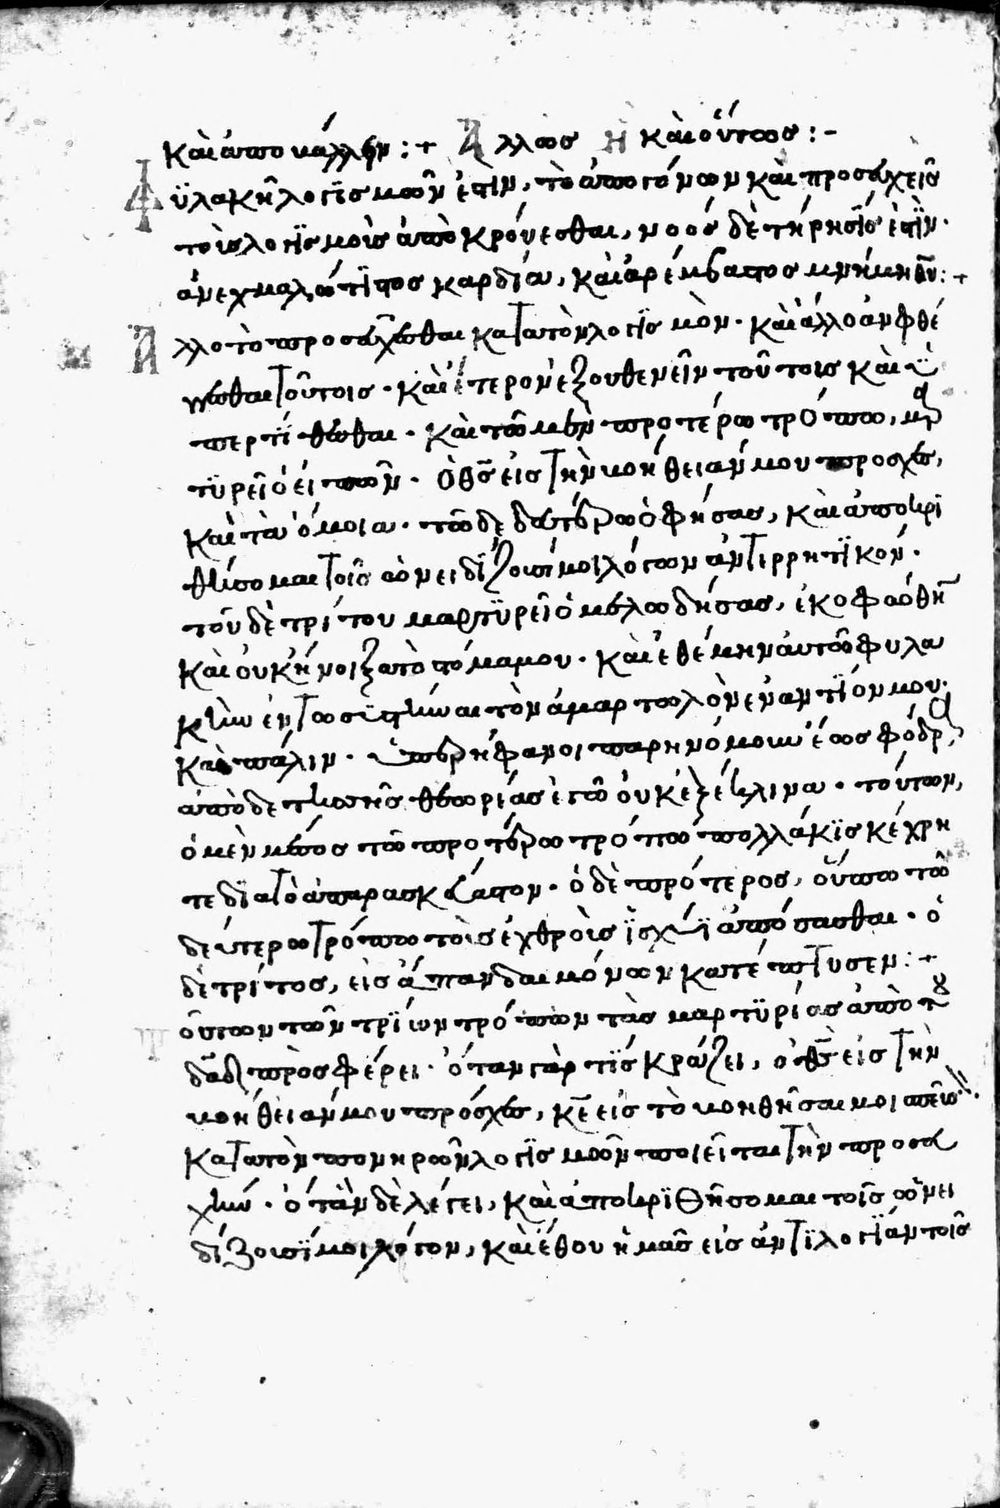 καὶ ἀποκάλλην :+ Ἄλλως ἢ καὶ οὕτως :-
Φϋλακὴ λογϊσμῶν ἐστιν, τὸ ἀπὸ γόνων καὶ προσευχεῖς
τοῖς λογϊσμοῖς ἀποκρούεσθαι, νοός δὲ τήρησϊς ἐστϊν·
ἀνεχμαλώτϊστος καρδία, καὶ ἀρέμβαστος μνήμη θῦ :+
Ἄλλο τὸ προσεύχεσθαι κατὰ τὸν λογϊσμὸν· καὶ ἄλλο ἀνφθέ
γγεσθαι τούτοις· καὶ ἕτερον ἐξουθενεῖν τούτοις καὶ ὑ
περτϊθεσθαι· καὶ τῶ μὲν προτέρω τρόπω, μαρ
τϋρεῖ ὁ εἰπῶν· ὁ θς εἰς τὴν βοήθειάν μου πρόσχες,
καὶ τὰ ὅμοια· τῶ δὲ δευτέρω ὁ φήσας, καὶ ἀποκρι
θήσομαι τοῖς ὀνειδίζουσϊ μοι λόγων ἀντιρρητϊκόν·
τοῦ δὲ τρίτου μαρτϋρεῖ ὁ μελωδήσας, ἐκοφώθην
καὶ οὐκ ἤνοιξα τὸ στόμα μου· καὶ ἐθέμην αὐτῶ φυλα
κὴν ἐν τῶ συστῆναι τὸν ἁμαρτωλὸν ἐναντϊον μου·
καὶ πάλιν· ὑπερήφανοι παρηνόμουν ἕως σφόδρα,
ἀπὸ δὲ τῆς θεωρίας ἐγὼ οὐκ ἐξέκλινα· τούτων,
ὁ μὲν μέσος τῶ προτέρω τρόπω πολλάκϊς κέχρη
τε διὰ τὸ ἀπαρασκεύαστον· ὁ δὲ πρότερος, οὔπω τῶ
δευτέρω τρόπω τοὺς ἐχθροὺς ϊσχύϊ ἀπώσασθαι· ὁ
δὲ τρίτος, εἰς ἅπαν δαιμόνων κατέπτυσεν :+
Τούτων τῶν τρϊων τρόπων τὰς μαρτϋρίας ἀπὸ τοῦ
δᾱδ προσφέρει· ὅταν γὰρ τϊς κράζει, ὁ θς εἰς τὴν
βοήθειάν μου πρόσχες, κε εἰς τὸ βοηθῆσαι μοι σπεῦσ·
κατὰ τῶν πονηρῶν λογϊσμῶν ποιεῖται τὴν προσευ
χὴν· ὅταν δὲ λέγει, καὶ ἀποκριθήσομαι τοῖς ὀνει
δίζουσϊ μοι λόγον, καὶ ἔθου ἡμᾶς εἰς ἀντϊλογϊαν τοῖς